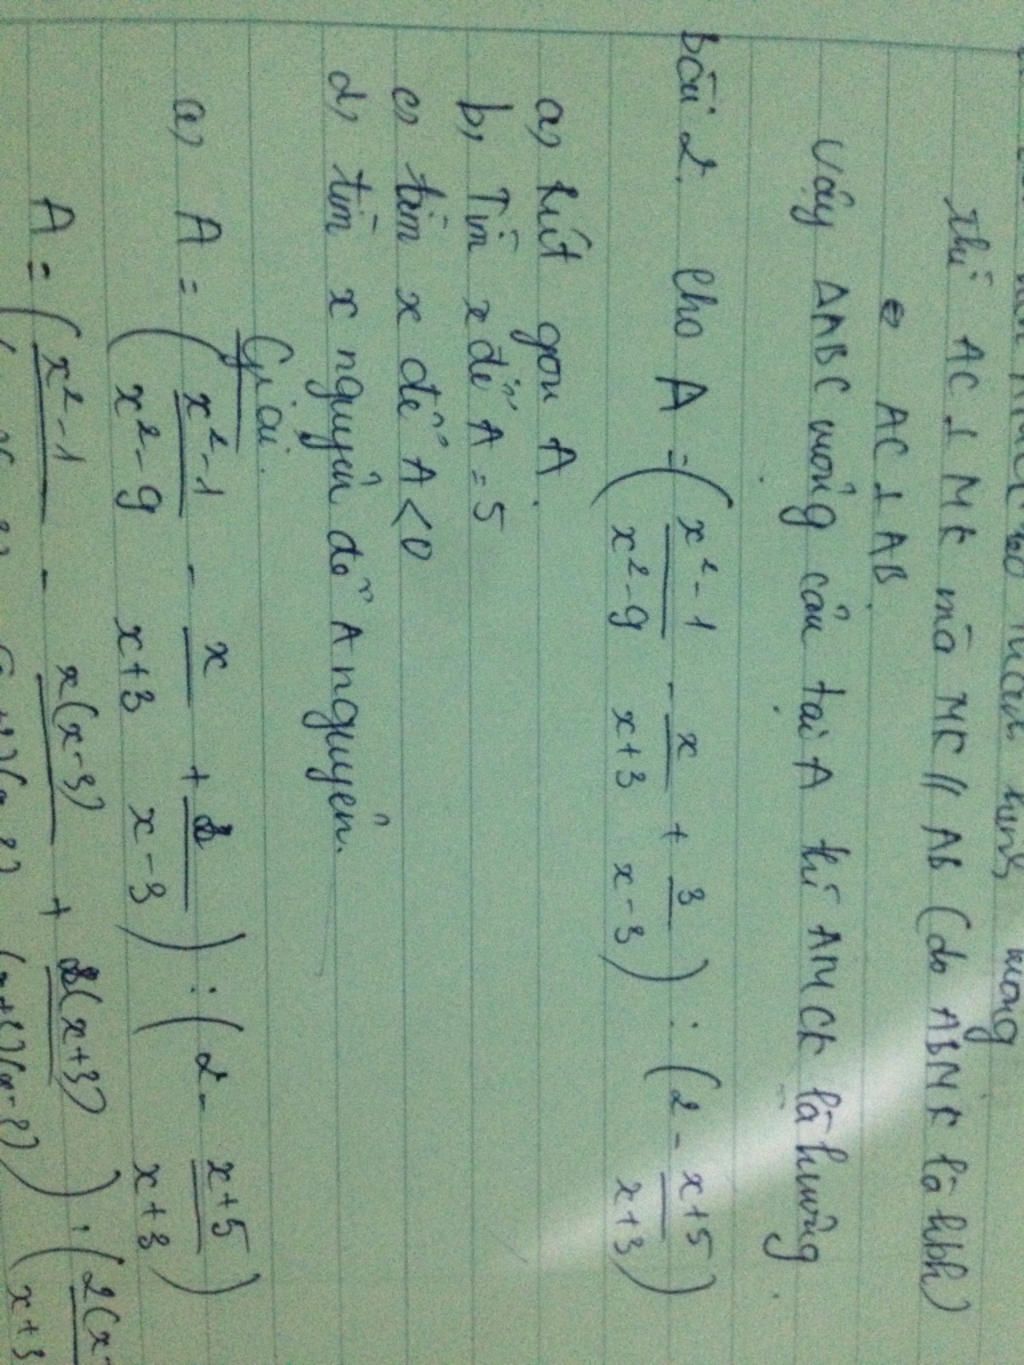 thì AC ⊥ MK mà MK // AB (do ABMK là hbh)
⇔ AC ⊥ AB.
Vậy ΔABC vuông cân tại A thì AMCK là hình vuông.
bài 2. Cho A = ( x² - 1 / x² - 9 - x / x + 3 + 3 / x - 3 ) : ( 2 - x + 5 / x + 3 )
a, Rút gọn A.
b, Tìm x để A = 5
c, tìm x để A < 0
d, tìm x nguyên để A nguyên.
Giải.
a, A = ( x² - 1 / x² - 9 - x / x + 3 + 3 / x - 3 ) : ( 2 - x + 5 / x + 3 )
A = ( x² - 1 - x(x - 3) + 3(x + 3) / (x+3)(x-3) ) : ( 2(x / x + 3